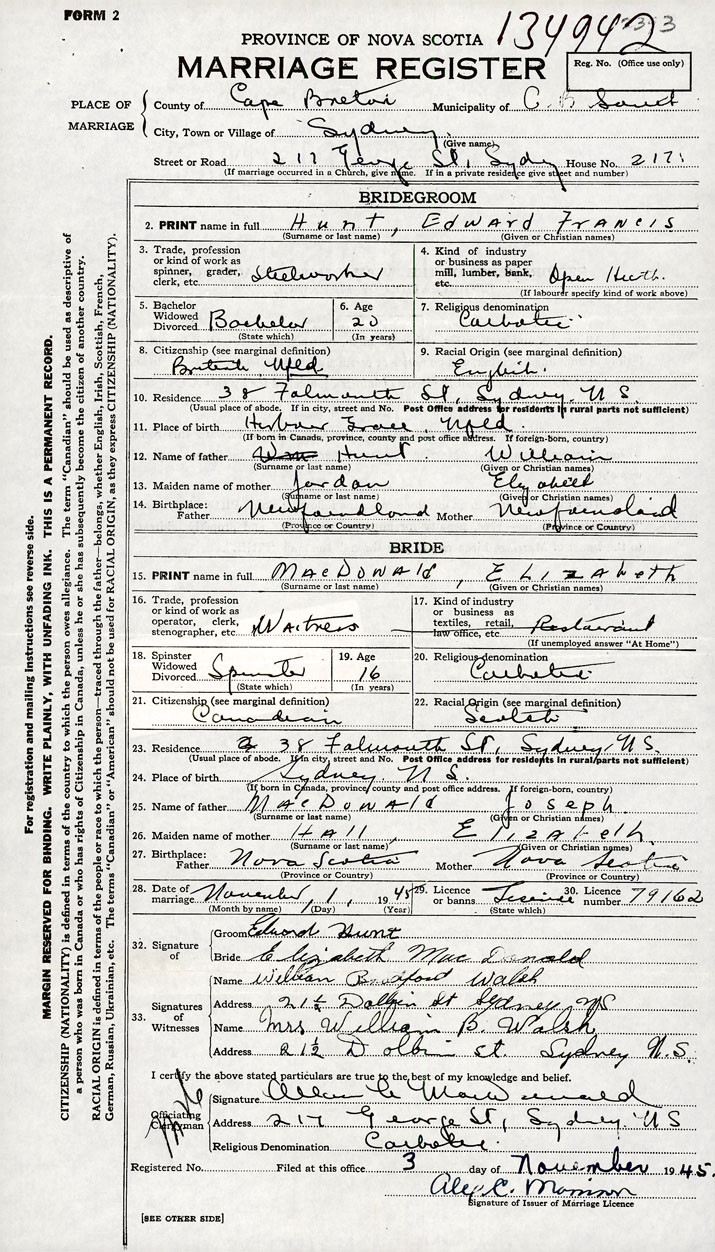 FORM 2
134942
PROVINCE OF NOVA SCOTIA
MARRIAGE REGISTER
Reg. No. (Office use only)
PLACE OF MARRIAGE
County of Cape Breton Municipality of C. B. South
City, Town or Village of Sydney
(Give name)
Street or Road 217 George St, Sydney House No. 217
(If marriage occurred in a Church, give name. If in a private residence give street and number)
BRIDEGROOM
2. PRINT name in full Hunt, Edward Francis
(Surname or last name) (Given or Christian names)
3. Trade, profession or kind of work as spinner, grader, clerk, etc. Steelworker
4. Kind of industry or business as paper mill, lumber, bank, etc. Open Hearth
(If labourer specify kind of work above)
5. Bachelor Widowed Divorced Bachelor
(State which)
6. Age 20
(In years)
7. Religious denomination Catholic
8. Citizenship (see marginal definition) British Nfld
9. Racial Origin (see marginal definition) English.
10. Residence 38 Falmouth St, Sydney, N S.
(Usual place of abode. If in city, street and No. Post Office address for residents in rural parts not sufficient)
11. Place of birth Harbour Grace, Nfld.
(If born in Canada, province, county and post office address. If foreign-born, country)
12. Name of father Hunt William
(Surname or last name) (Given or Christian names)
13. Maiden name of mother Jordan Elizabeth
(Surname or last name) (Given or Christian names)
14. Birthplace: Father Newfoundland Mother Newfoundland
(Province or Country) (Province or Country)
BRIDE
15. PRINT name in full MacDonald, Elizabeth
(Surname or last name) (Given or Christian names)
16. Trade, profession or kind of work as operator, clerk, stenographer, etc. Waitress
17. Kind of industry or business as textiles, retail, law office, etc. Restaurant
(If unemployed answer "At Home")
18. Spinster Widowed Divorced Spinster
(State which)
19. Age 16
(In years)
20. Religious denomination Catholic
21. Citizenship (see marginal definition) Canadian
22. Racial Origin (see marginal definition) Scotch
23. Residence 38 Falmouth St, Sydney, N S.
(Usual place of abode. If in city, street and No. Post Office address for residents in rural parts not sufficient)
24. Place of birth Sydney. N S.
(If born in Canada, province, county and post office address. If foreign-born, country)
25. Name of father MacDonald Joseph
(Surname or last name) (Given or Christian names)
26. Maiden name of mother Hall, Elizabeth.
(Surname or last name) (Given or Christian names)
27. Birthplace: Father Nova Scotia Mother Nova Scotia
(Province or Country) (Province or Country)
28. Date of marriage November, 1, 1945
(Month by name) (Day) (Year)
29. Licence or banns License
(State which)
30. Licence number 79162
32. Signature of
Groom Edward Hunt
Bride Elizabeth Mac Donald
33. Signatures of Witnesses
Name William Walsh
Address 21½ Dolbin St Sydney NS
Name Mrs. William B. Walsh
Address 21½ Dolbin st. Sydney N.S.
I certify the above stated particulars are true to the best of my knowledge and belief.
Officiating Clergyman
Signature
Address 217 George St, Sydney. NS
Religious Denomination Catholic.
Registered No. Filed at this office 3 day of November 1945.
Alex. C. Morrison
Signature of Issuer of Marriage Licence
[SEE OTHER SIDE]
For registration and mailing instructions see reverse side.
MARGIN RESERVED FOR BINDING. WRITE PLAINLY, WITH UNFADING INK. THIS IS A PERMANENT RECORD.
CITIZENSHIP (NATIONALITY) is defined in terms of the country to which the person owes allegiance. The term "Canadian" should be used as descriptive of
a person who was born in Canada or who has rights of Citizenship in Canada, unless he or she has subsequently become the citizen of another country.
RACIAL ORIGIN is defined in terms of the people or race to which the person—traced through the father—belongs, whether English, Irish, Scottish, French,
German, Russian, Ukrainian, etc. The terms "Canadian" or "American" should not be used for RACIAL ORIGIN, as they express CITIZENSHIP (NATIONALITY).